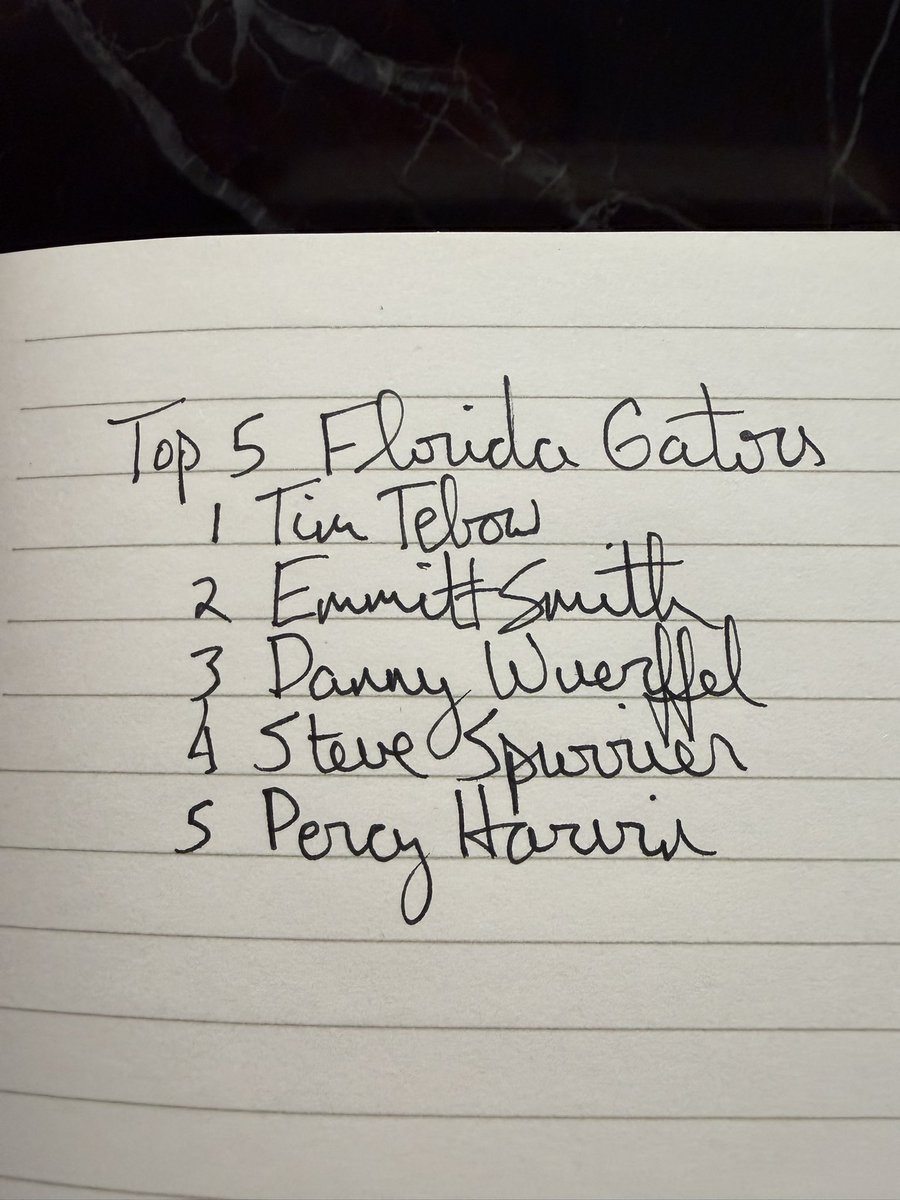 Top 5 Florida Gators
1 Tim Tebow
2 Emmitt Smith
3 Danny Wuerffel
4 Steve Spurrier
5 Percy Harvin